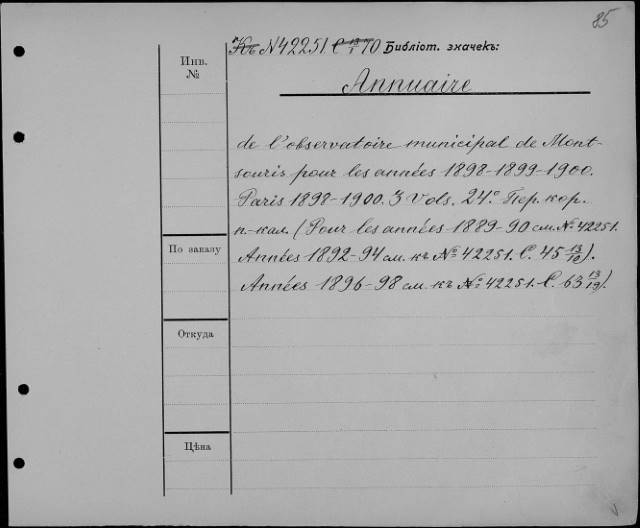 85
Къ N 42251. C 13/1 70 Библіот. значекъ:
Инв.
№
Annuaire
de l'observatoire municipal de Mont-
souris pour les années 1898-1899-1900.
Paris 1898-1900. 3 Vols. 24.° Пер. кор.
п.-кал. (Pour les années 1889-90 см. №. 42251.
По заказу
Années 1892-94 см. къ № 42251. C. 45 13/10).
Années 1896-98 см. къ № 42251. C. 63 13/19).
Откуда
Цѣна